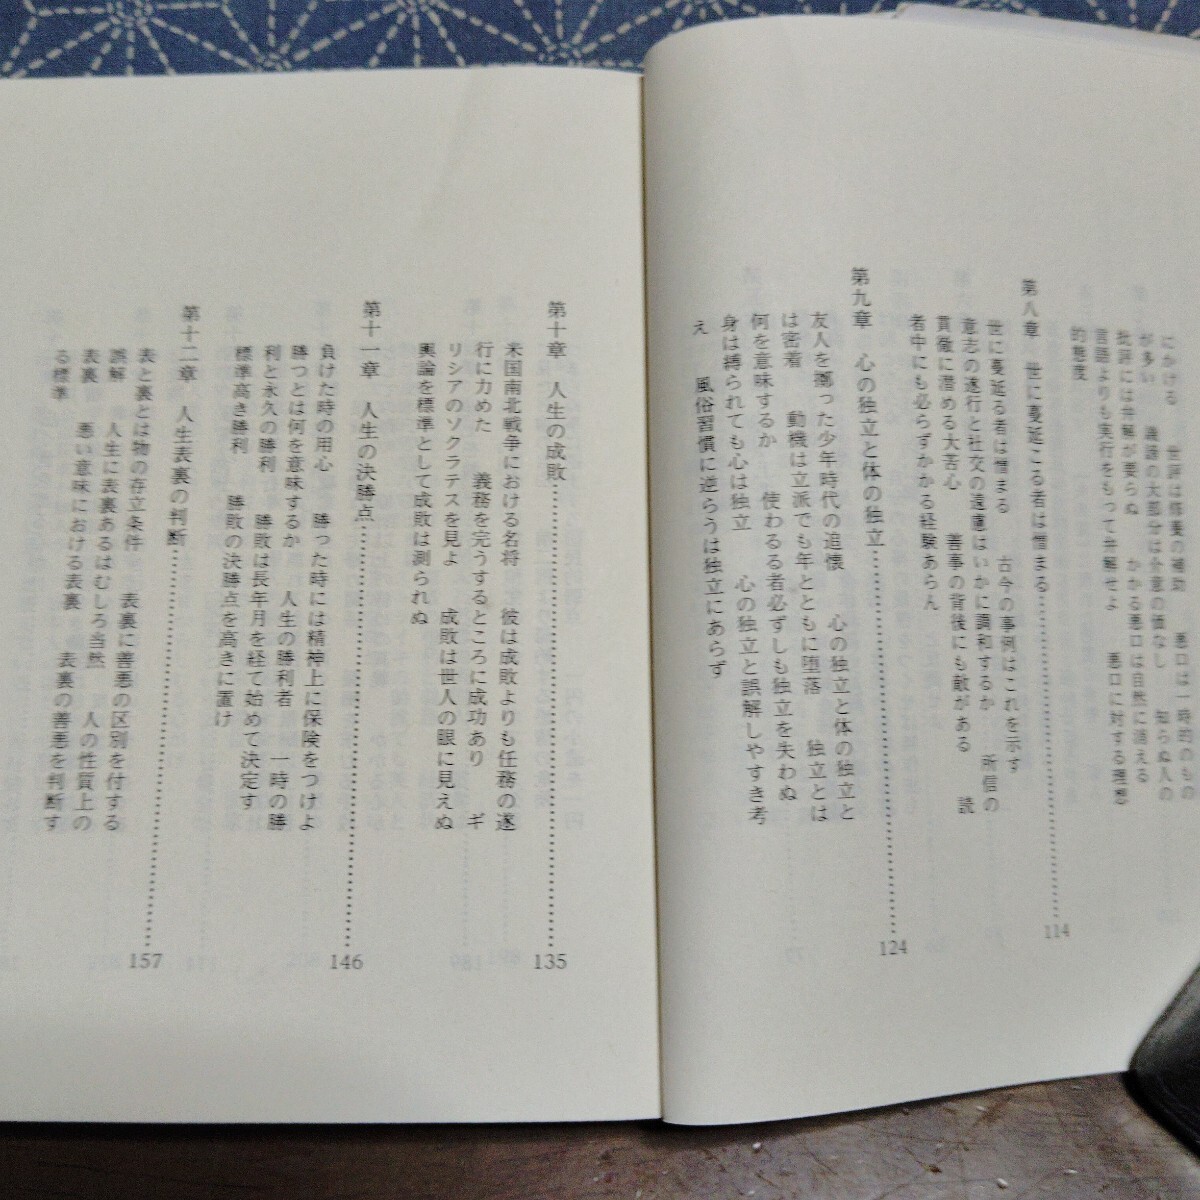 にかける　世評は修養の補助　悪口は一時的のもの
が多い　誹謗の大部分は介意の価なし　知らぬ人の
批評には弁解が要らぬ　かかる悪口は自然に消える
言語よりも実行をもって弁解せよ　悪口に対する理想
的態度
第八章　世に蔓延こる者は憎まる……………………114
世に蔓延る者は憎まる　古今の事例はこれを示す
意志の遂行と社交の遠慮はいかに調和するか　所信の
貫徹に潜める大苦心　善事の背後にも敵がある　読
者中にも必らずかかる経験あらん
第九章　心の独立と体の独立……………………124
友人を擲った少年時代の追懐　心の独立と体の独立と
は密着　動機は立派でも年とともに堕落　独立とは
何を意味するか　使わるる者必ずしも独立を失わぬ
身は縛られても心は独立　心の独立と誤解しやすき考
え　風俗習慣に逆らうは独立にあらず
第十章　人生の成敗……………………135
米国南北戦争における名将　彼は成敗よりも任務の遂
行に力めた　義務を完うするところに成功あり　ギ
リシアのソクラテスを見よ　成敗は世人の眼に見えぬ
輿論を標準として成敗は測られぬ
第十一章　人生の決勝点……………………146
負けた時の用心　勝った時には精神上に保険をつけよ
勝つとは何を意味するか　人生の勝利者　一時の勝
利と永久の勝利　勝敗は長年月を経て始めて決定す
標準高き勝利　勝敗の決勝点を高きに置け
第十二章　人生表裏の判断……………………157
表と裏とは物の存立条件　表裏に善悪の区別を付する
誤解　人生に表裏あるはむしろ当然　人の性質上の
表裏　悪い意味における表裏　表裏の善悪を判断す
る標準